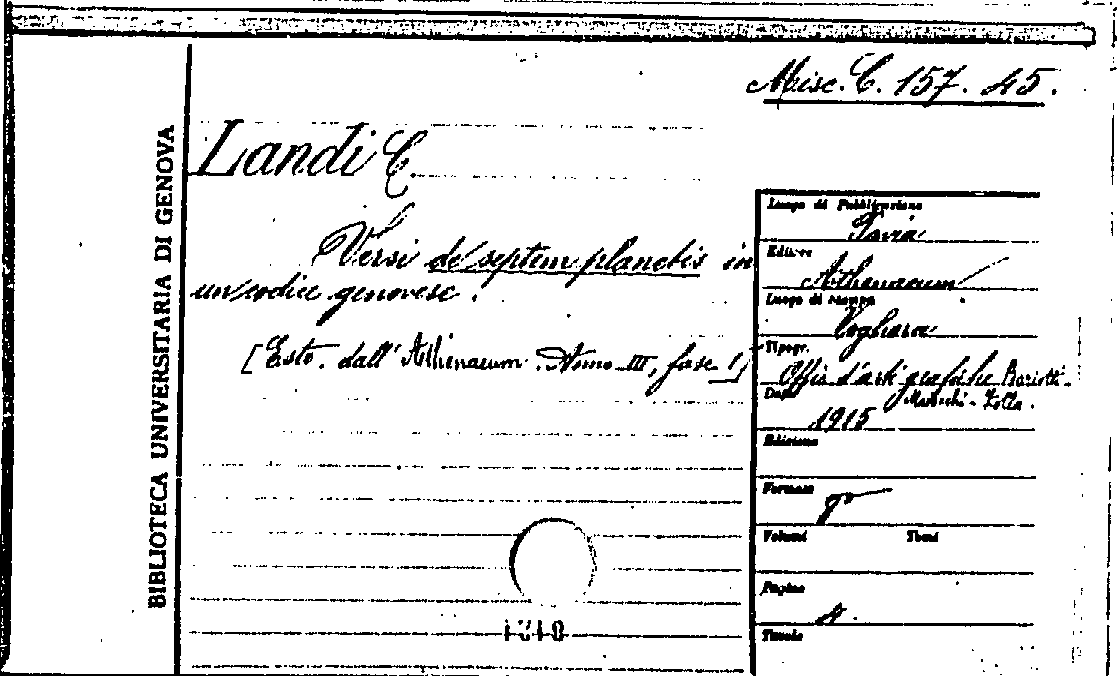 Misc. C. 157. 45.
BIBLIOTECA UNIVERSITARIA DI GENOVA
Landi C.
Versi de septem planetis in
un codice genovese.
[Estr. dall' Athenaeum. Anno III, fasc. 1]
Luogo di Pubblicazione
Pavia
Editore
Athenaeum
Luogo di stampa
Voghera
Tipogr.
Offic. d'arti grafiche Boriotti-
Zolla.
Data
1915
Edizione
Formato
8°
Volumi Tomi
Pagine
4.
Tavole